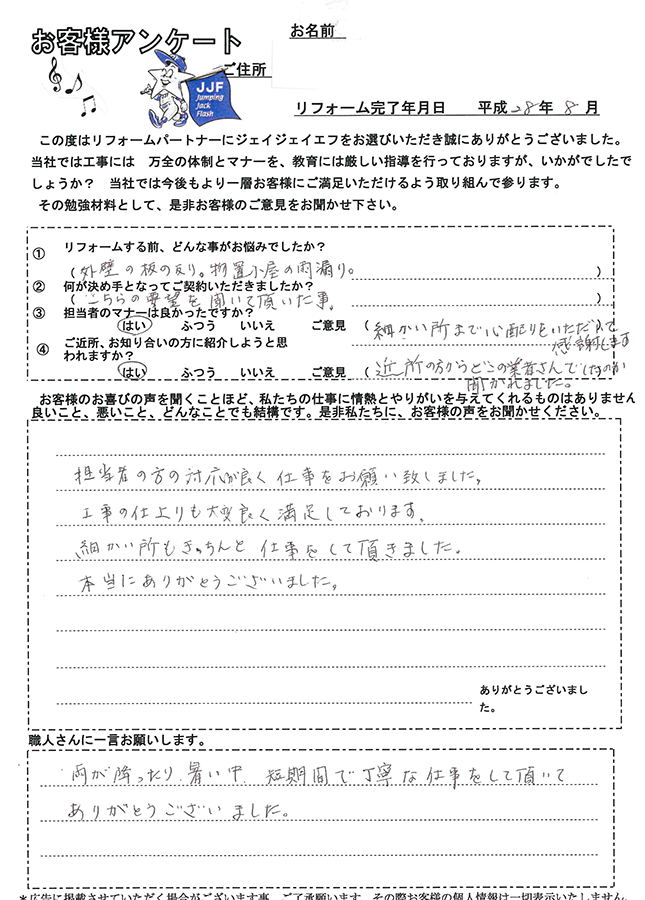 お客様アンケート
お名前
ご住所
JJF
Jumping
Jack
Flash
リフォーム完了年月日 平成28年8月
この度はリフォームパートナーにジェイジェイエフをお選びいただき誠にありがとうございました。
当社では工事には 万全の体制とマナーを、教育には厳しい指導を行っておりますが、いかがでしたで
しょうか? 当社では今後もより一層お客様にご満足いただけるよう取り組んで参ります。
その勉強材料として、是非お客様のご意見をお聞かせ下さい。
① リフォームする前、どんな事がお悩みでしたか?
(外壁の板の反り。物置小屋の雨漏り。)
② 何が決め手となってご契約いただきましたか?
(こちらの要望を聞いて頂いた事。)
③ 担当者のマナーは良かったですか?
はい ふつう いいえ ご意見 (細かい所まで心配りをいただいて
感謝します
④ ご近所、お知り合いの方に紹介しようと思
われますか?
はい ふつう いいえ ご意見 (近所の方からどこの業者さんでしたのか
聞かれました。
お客様のお喜びの声を聞くことほど、私たちの仕事に情熱とやりがいを与えてくれるものはありません
良いこと、悪いこと、どんなことでも結構です。是非私たちに、お客様の声をお聞かせください。
担当者の方の対応が良く仕事をお願い致しました。
工事の仕上りも大変良く満足しております。
細かい所もきっちんと仕事をして頂きました。
本当にありがとうございました。
ありがとうございまし
た。
職人さんに一言お願いします。
雨が降ったり、暑い中、短期間で丁寧な仕事をして頂いて
ありがとうございました。
*広告に掲載させていただく場合がございます事、ご了承願います。その際お客様の個人情報は一切表示いたしません。